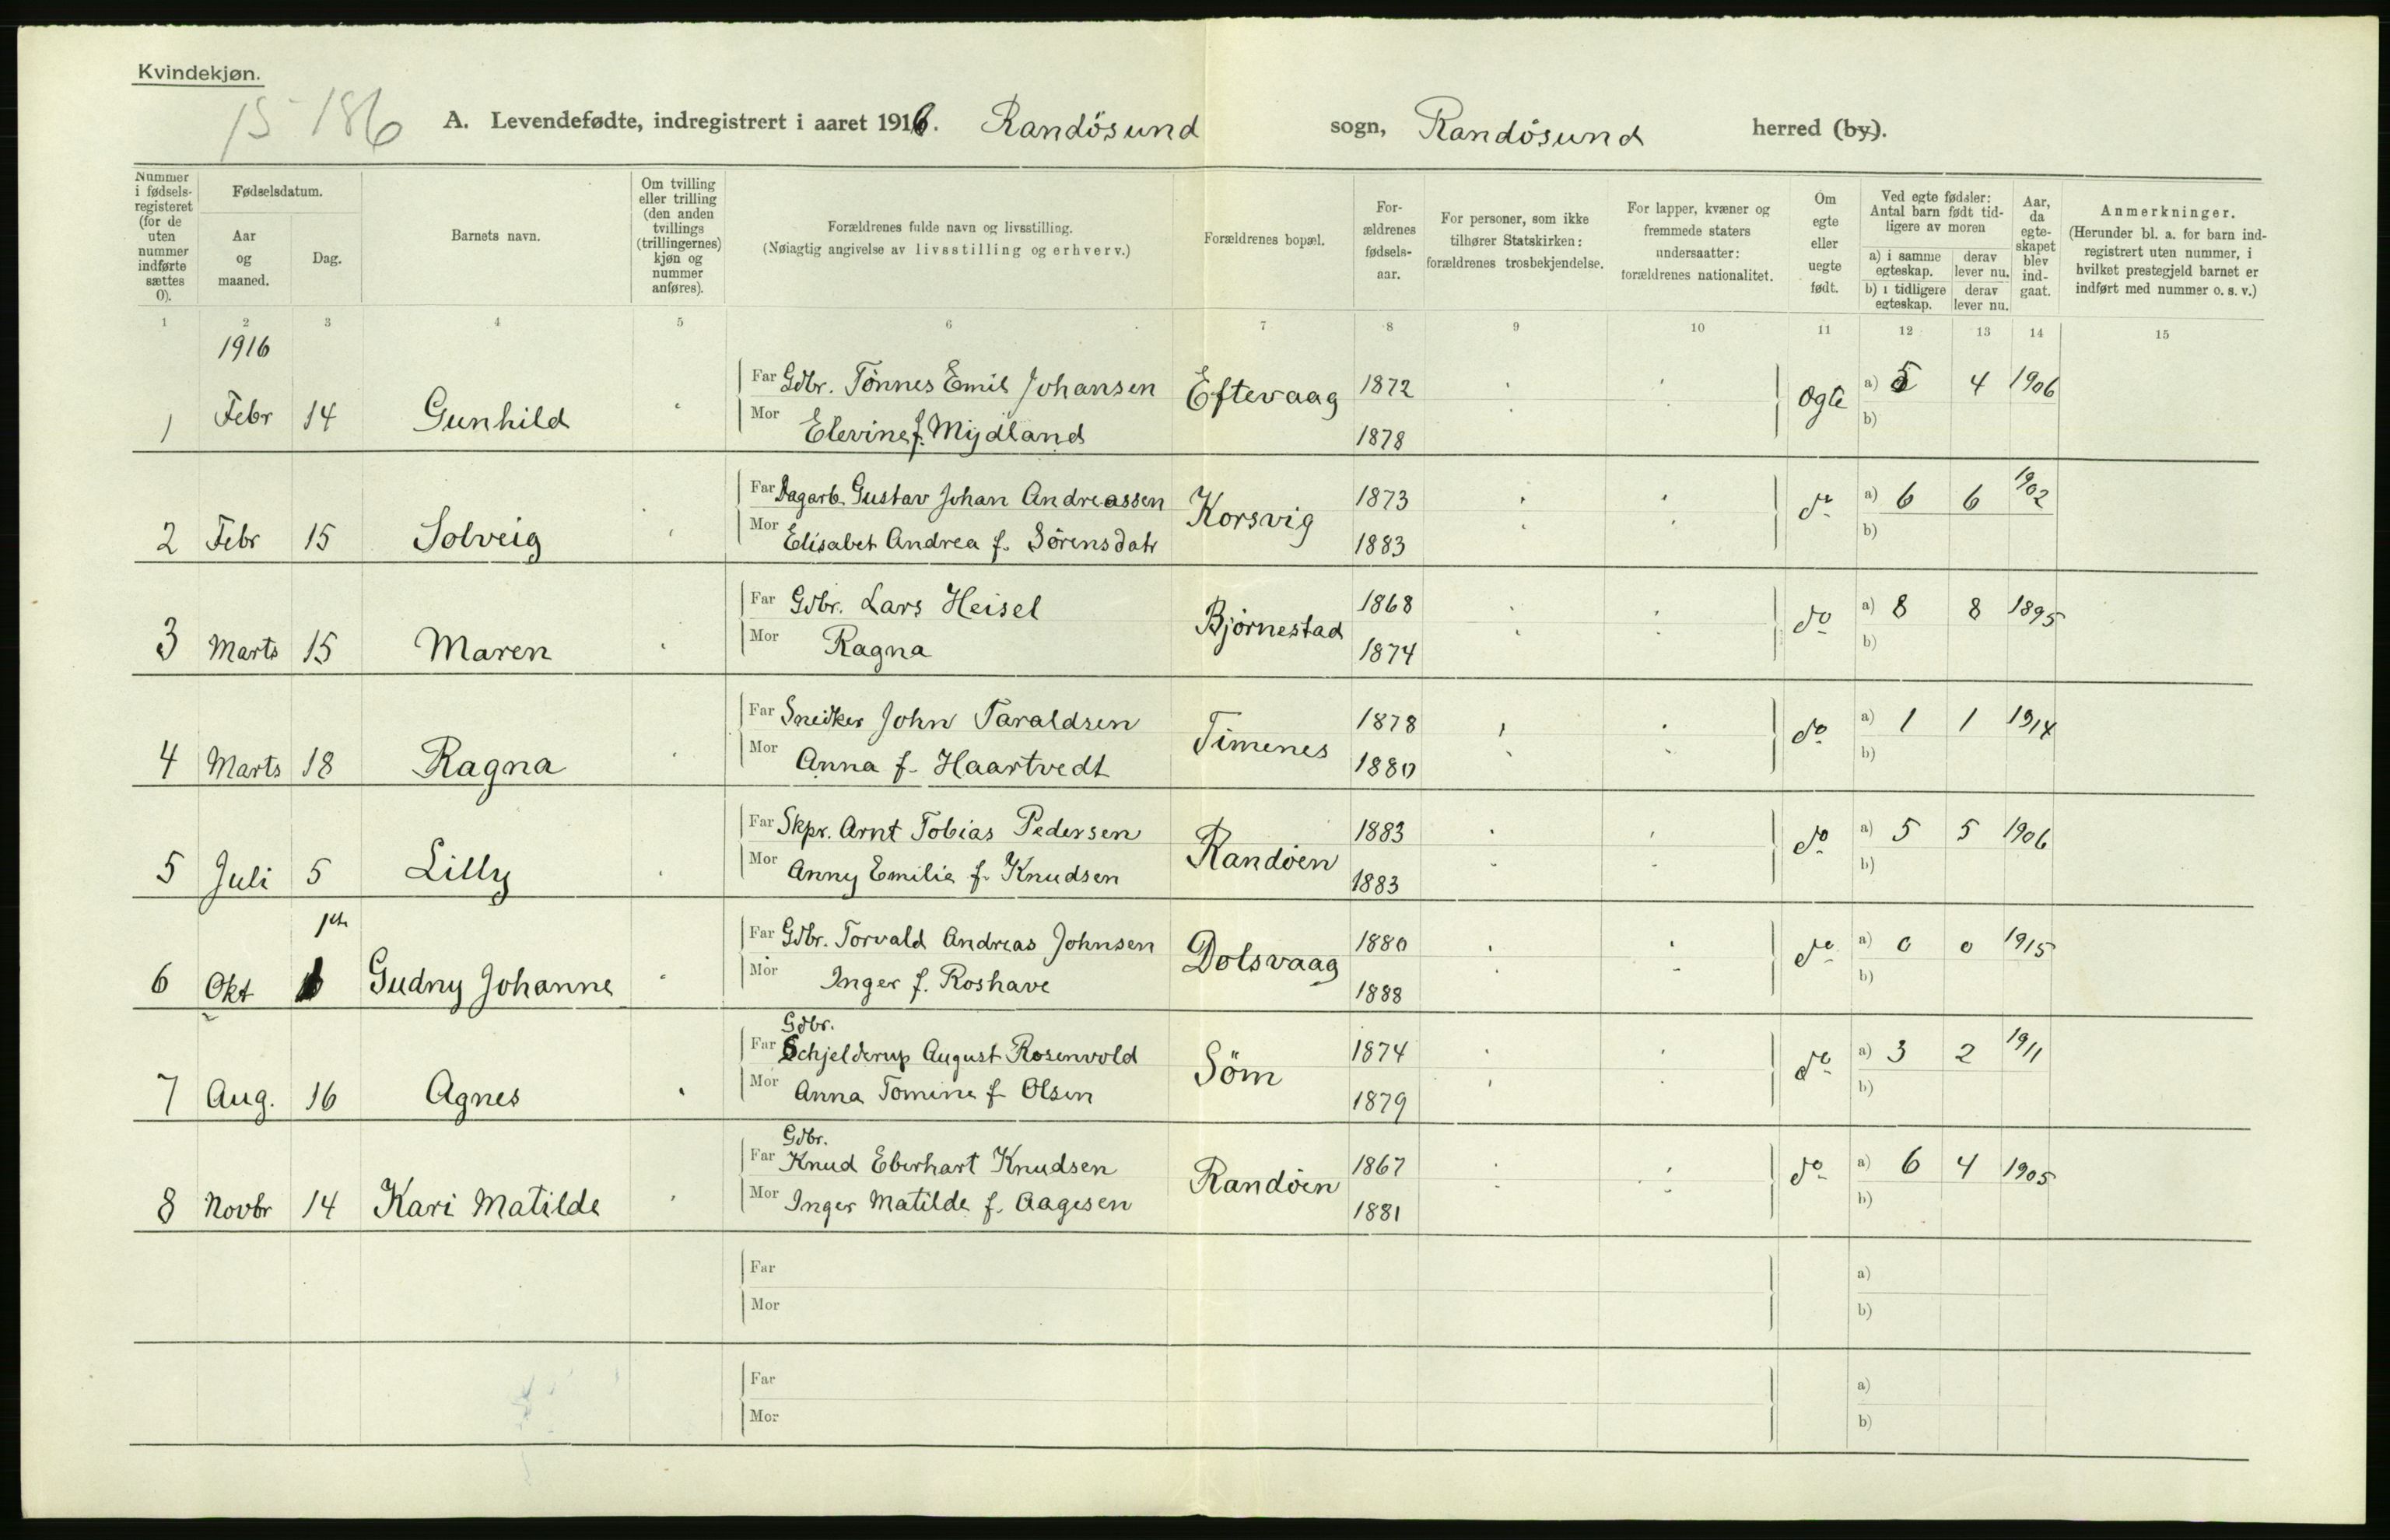 Kvindekjøn.
15-186
A. Levendefødte, indregistrert i aaret 1916. Randösund sogn, Randösund herred (by).
Nummer i fødselsregisteret (for de uten nummer indførte sættes 0).
Fødselsdatum.
Aar og maaned.
Dag.
Barnets navn.
Om tvilling eller trilling (den anden tvillings (trillingernes) kjøn og nummer anføres).
Forældrenes fulde navn og livsstilling.
(Nøiagtig angivelse av livsstilling og erhverv.)
Forældrenes bopæl.
Forældrenes fødselsaar.
For personer, som ikke tilhører Statskirken: forældrenes trosbekjendelse.
For lapper, kvæner og fremmede staters undersaatter: forældrenes nationalitet.
Om egte eller uegte født.
Ved egte fødsler: Antal barn født tidligere av moren
a) i samme egteskap. derav lever nu.
b) i tidligere egteskap. derav lever nu.
Aar, da egteskapet blev indgaat.
Anmerkninger.
(Herunder bl. a. for barn indregistrert uten nummer, i hvilket prestegjeld barnet er indført med nummer o. s. v.)
1 2 3 4 5 6 7 8 9 10 11 12 13 14 15
1916
1 Febr 14 Gunhild
Far Gdbr. Tönnes Emil Johansen Eftevaag 1872 Ogte a) 5 4 1906
Mor Elevine f. Mydland 1878 b)
2 Febr 15 Solveig
Far Dagarb. Gustav Johan Andreassen Korsvig 1873 do a) 6 6 1902
Mor Elisabet Andrea f. Sörensdatr 1883 b)
3 Marts 15 Maren
Far Gdbr. Lars Heisel Björnestad 1868 do a) 8 8 1895
Mor Ragna 1874 b)
4 Marts 18 Ragna
Far Snedker John Taraldsen Timenes 1878 do a) 1 1 1914
Mor Anna f. Haartvedt 1880 b)
5 Juli 5 Lilly
Far Skpr. Arnt Tobias Pedersen Randöen 1883 do a) 5 5 1906
Mor Anny Emilie f. Knudsen 1883 b)
6 Okt 1 Gudny Johanne
Far Gdbr. Torvald Andreas Johnsen Dolsvaag 1880 do a) 0 0 1915
Mor Inger f. Roshave 1888 b)
7 Aug. 16 Agnes
Gdbr.
Far Schjelderup August Rosenvold Söm 1874 do a) 3 2 1911
Mor Anna Tomine f. Olsen 1879 b)
8 Novbr 14 Kari Matilde
Gdbr.
Far Knud Eberhart Knudsen Randöen 1867 do a) 6 4 1905
Mor Inger Matilde f. Aagesen 1881 b)
Far a)
Mor b)
Far a)
Mor b)